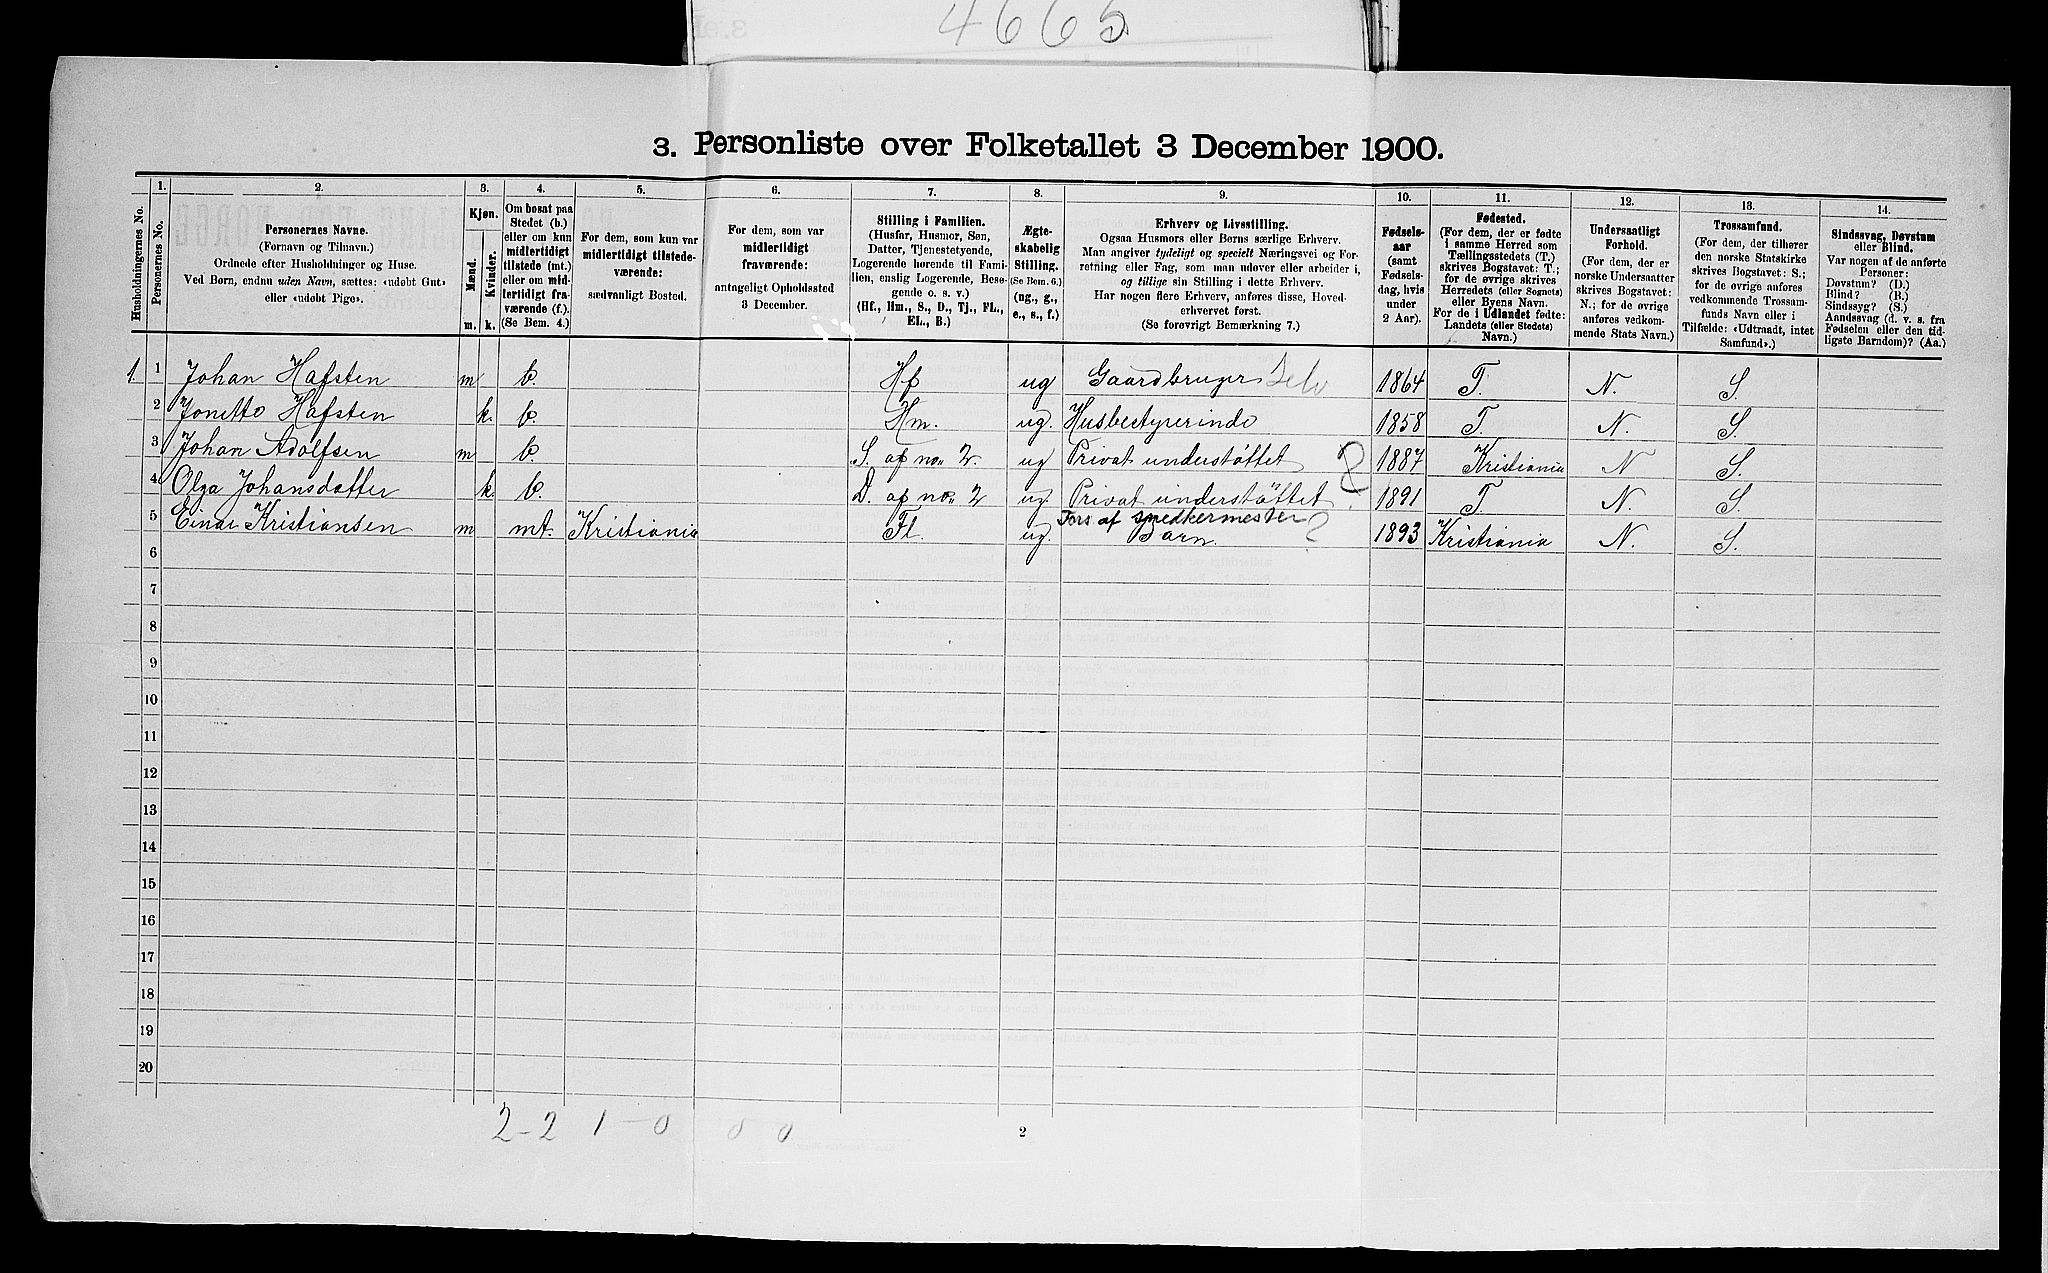 4665
3. Personliste over Folketallet 3 December 1900.
Husholdningernes No.
1.
Personernes No.
2.
Personernes Navne.
(Fornavn og Tilnavn.)
Ordnede efter Husholdninger og Huse.
Ved Børn, endnu uden Navn, sættes: «udøbt Gut»
eller «udøbt Pige».
3.
Kjøn.
Mænd.
Kvinder.
m.
k.
4.
Om bosat paa
Stedet (b.)
eller om kun
midlertidigt
tilstede (mt.)
eller om mid-
lertidigt fra-
værende (f.).
(Se Bem. 4.)
5.
For dem, som kun var
midlertidigt tilstede-
værende:
sædvanligt Bosted.
6.
For dem, som var
midlertidigt
fraværende:
antageligt Opholdssted
3 December.
7.
Stilling i Familien.
(Husfar, Husmor, Søn,
Datter, Tjenestetyende,
Logerende hørende til Fami-
lien, enslig Logerende, Besø-
gende o. s. v.)
(Hf., Hm., S., D., Tj., FL.,
EL., B.)
8.
Ægte-
skabelig
Stilling.
(Se Bem. 6.)
(ug., g.,
e., s., f.)
9.
Erhverv og Livsstilling.
Ogsaa Husmors eller Børns særlige Erhverv.
Man angiver tydeligt og specielt Næringsvei og For-
retning eller Fag, som man udøver eller arbeider i,
og tillige sin Stilling i dette Erhverv.
Har nogen flere Erhverv, anføres disse, Hoved-
erhvervet først.
(Se forøvrigt Bemærkning 7.)
10.
Fødsels-
aar
(samt
Fødsels-
dag, hvis
under
2 Aar).
11.
Fødested.
(For dem, der er fødte
i samme Herred som
Tællingsstedets (T.)
skrives Bogstavet: T.;
for de øvrige skrives
Herredets (eller Sognets)
eller Byens Navn.
For de i Udlandet fødte:
Landets (eller Stedets)
Navn.)
12.
Undersaatligt
Forhold.
(For dem, der er
norske Undersaatter
skrives Bogstavet:
N.; for de øvrige
anføres vedkom-
mende Stats Navn.)
13.
Trossamfund.
(For dem, der tilhører
den norske Statskirke
skrives Bogstavet: S.;
for de øvrige anføres
vedkommende Trossam-
funds Navn eller i
Tilfælde: «Udtraadt, intet
Samfund».)
14.
Sindssvag, Døvstum
eller Blind.
Var nogen af de anførte
Personer:
Døvstum? (D.)
Blind? (B.)
Sindssyg? (S.)
Aandssvag (d. v. s. fra
Fødselen eller den tid-
ligste Barndom)? (Aa.)
1. 1 Johan Hafsten m b. Hf ug Gaardbruger Selv 1864 T. N. S.
2 Jonette Hafsten k. b. Hm. ug. Husbestyrerinde 1858 T. N. S.
3 Johan Adolfsen m b. S. af no. 2. ug Privat understøttet 1887 Kristiania N S.
4 Olga Johansdatter k. b. D. af no. 2 ug. Privat understøttet 1891 T. N. S.
5 Einar Kristiansen m mt. Kristiania Fl. ug. Fors af snedkermester Barn. ? 1893 Kristiania N. S.
6
7
8
9
10
11
12
13
14
15
16
17
18
19
20
2-2 1-0 0 0
2